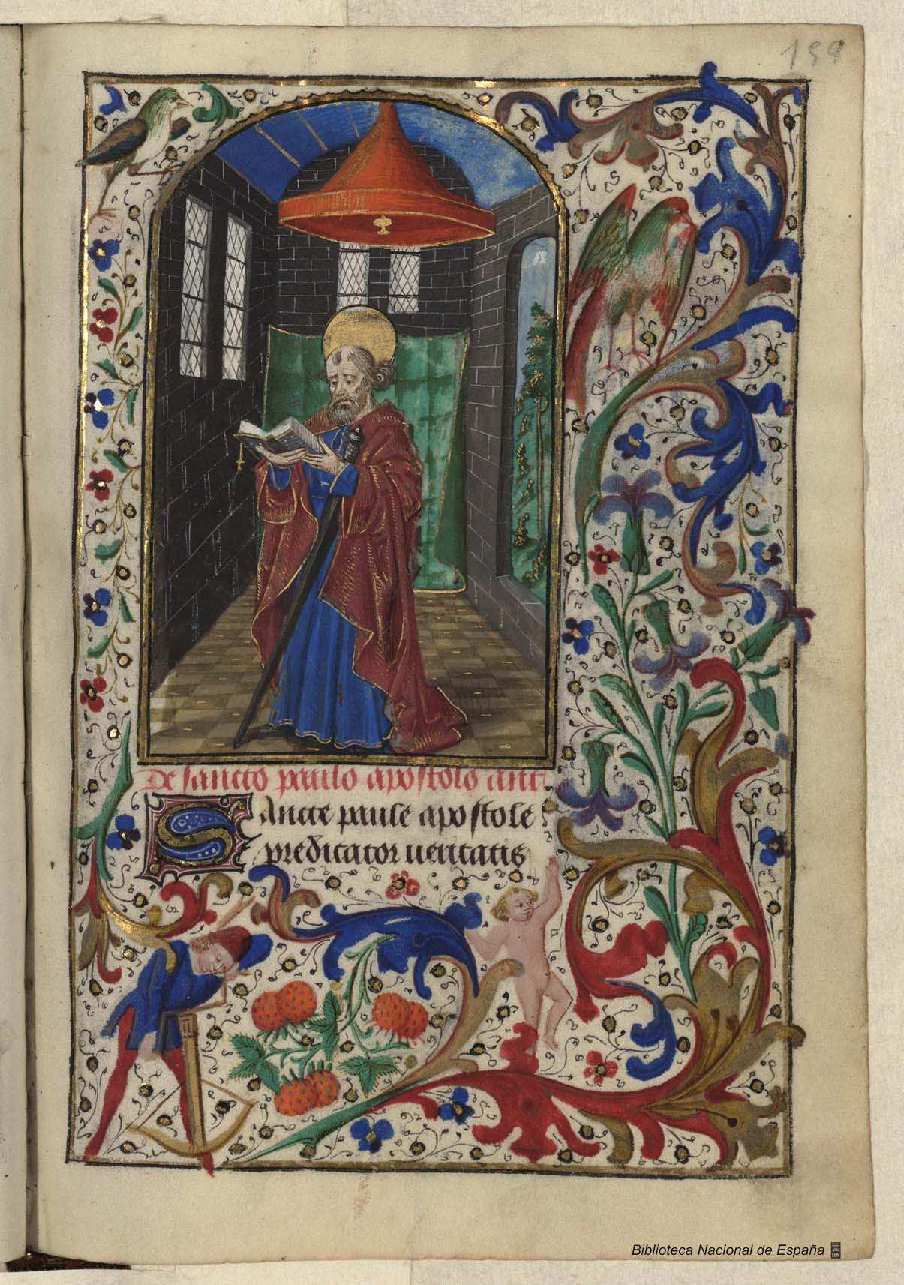 159
De sancto paulo apostolo antã
Sancte paule apostole
predicator ueritatis
Biblioteca Nacional de España